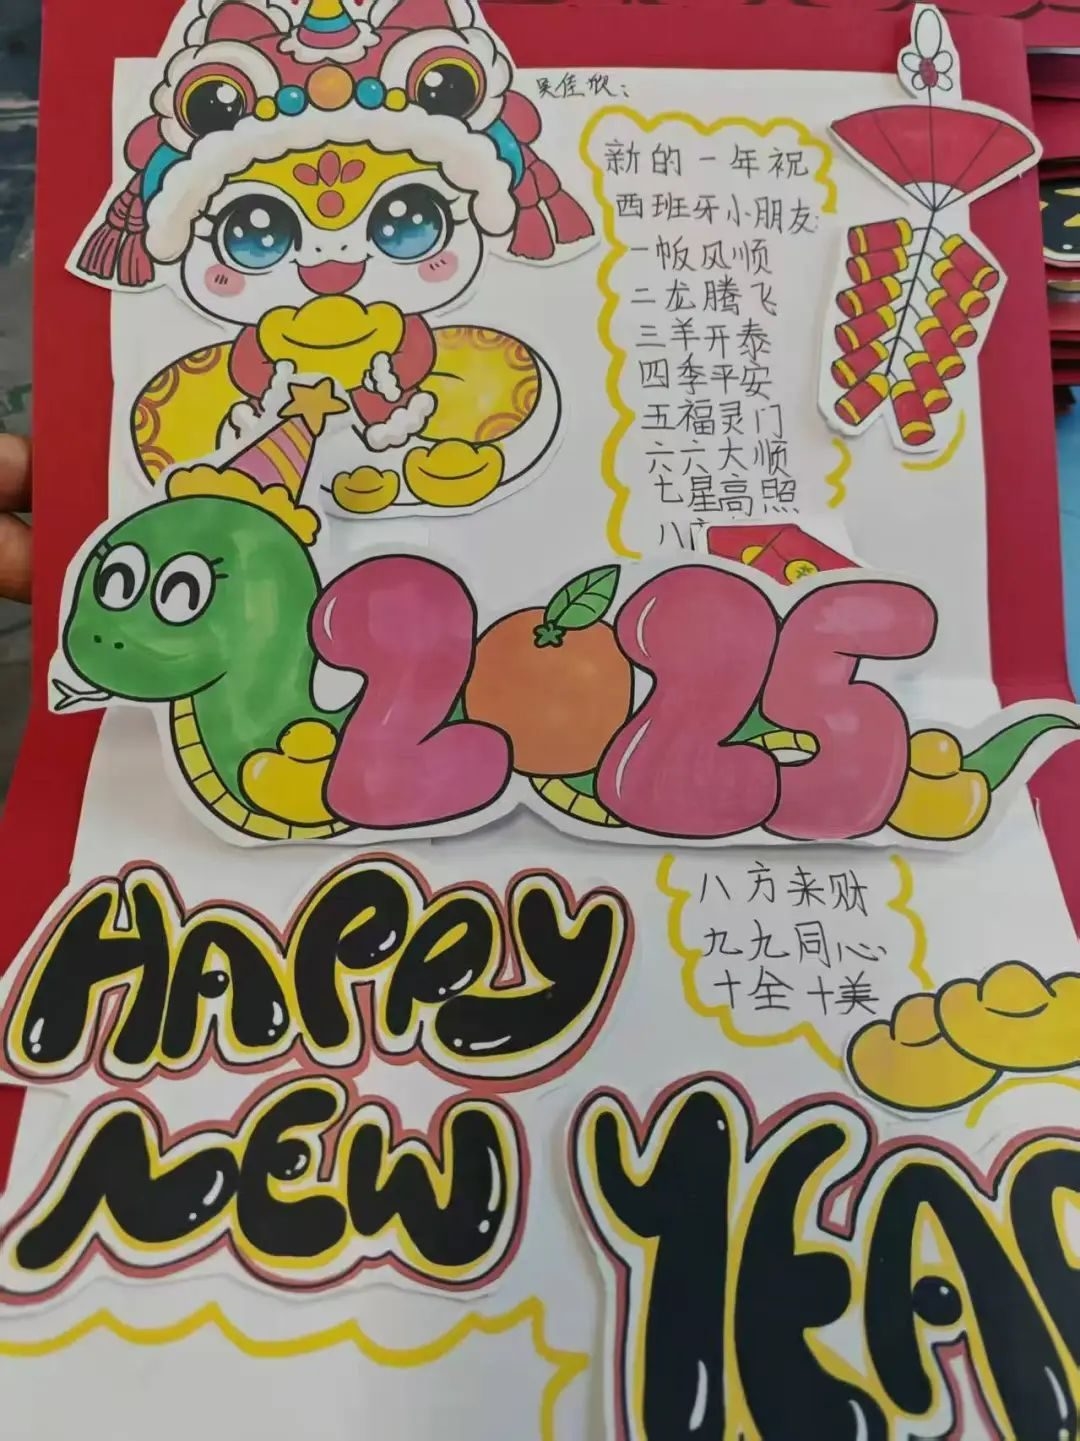 吴佳欣:
新的一年祝
西班牙小朋友:
一帆风顺
二龙腾飞
三羊开泰
四季平安
五福灵门
六六大顺
七星高照
八方
2025
八方来财
九九同心
十全十美
HAPPY
NEW
YEA